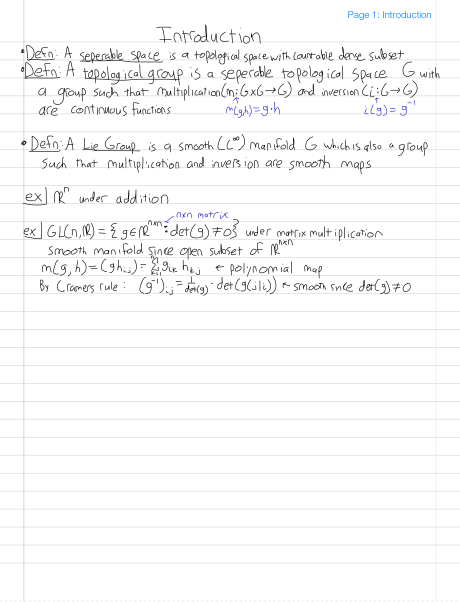 Page 1: Introduction
Introduction
• Defn: A seperable space is a topological space with countable dense subset
• Defn: A topological group is a seperable topological space G with
a group such that multiplication (m: G×G→G) and inversion (i: G→G)
are continuous functions m(g,h)=g·h i(g)=g⁻¹
• Defn: A Lie Group is a smooth (C^∞) manifold G which is also a group
such that multiplication and inversion are smooth maps
ex| ℝⁿ under addition
n×n matrix
ex| GL(n,ℝ) = { g∈ℝ^{n×n} : det(g) ≠ 0 } under matrix multiplication
smooth manifold since open subset of ℝ^{n×n}
m(g,h) = (gh)_{i,j} = Σ g_{ik} h_{kj} ← polynomial map
By Cramers rule: (g⁻¹)_{i,j} = 1/det(g) · det(g(j|i)) ← smooth since det(g) ≠ 0